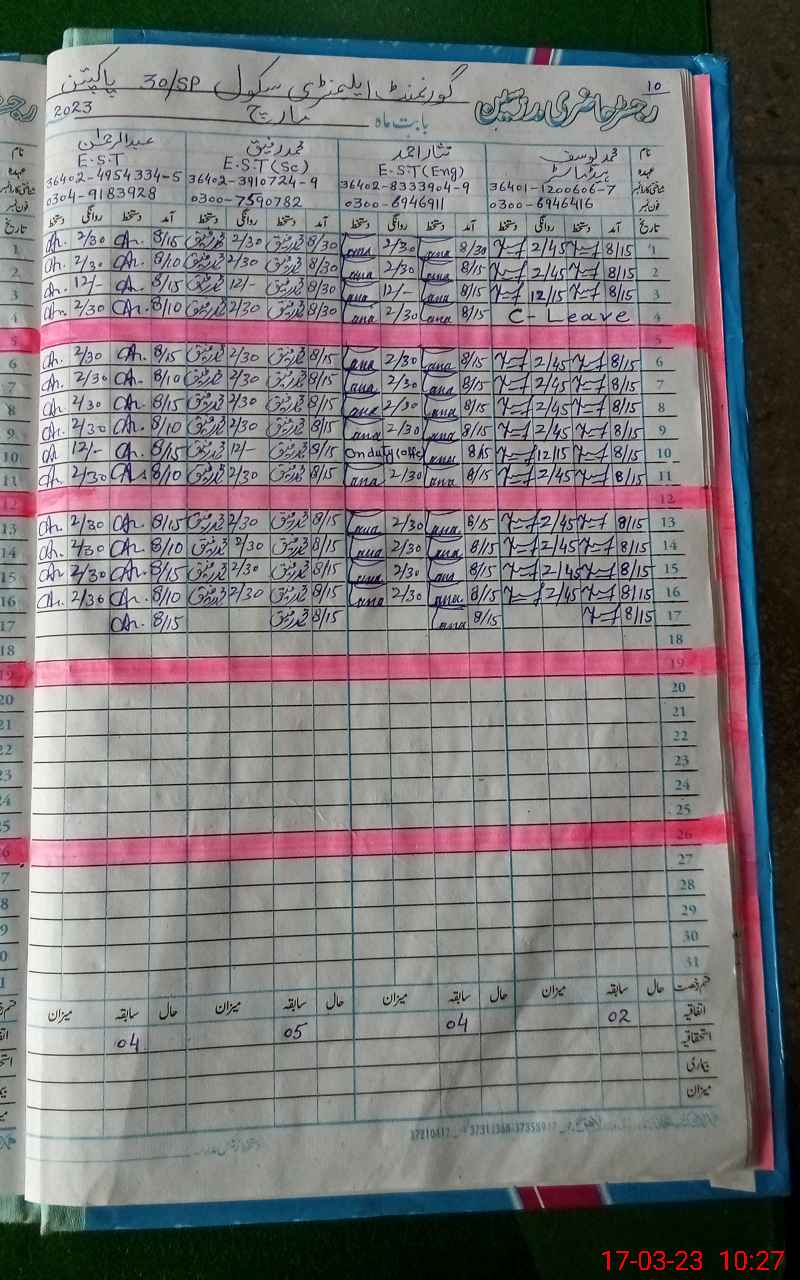 10
گورنمنٹ ایلیمنٹری سکول 30/SP پاکپتن
رجسٹر حاضری مدرسین
بابت ماہ مارچ 2023
نام محمد یوسف نثار احمد محمد رفیق عبدالرحمٰن
عہدہ ہیڈماسٹر E.S.T(Eng) E.S.T(Sc) E.S.T
36401-1200606-7 36402-8333904-9 36402-3910724-9 36402-4954334-5
فون نمبر 0300-6946416 0300-6946911 0300-7590782 0304-9183928
تاریخ آمد دستخط روانگی دستخط آمد دستخط روانگی دستخط آمد دستخط روانگی دستخط آمد دستخط روانگی دستخط
1 8/15 2/45 8/30 2/30 8/30 محمد رفیق 2/30 محمد رفیق 8/15 2/30
2 8/15 2/45 8/15 2/30 8/30 محمد رفیق 2/30 محمد رفیق 8/10 2/30
3 8/15 12/15 8/15 12/- 8/30 محمد رفیق 12/- محمد رفیق 8/15 12/-
4 C-Leave 8/15 2/30 8/30 محمد رفیق 2/30 محمد رفیق 8/10 2/30
5
6 8/15 2/45 8/15 2/30 8/15 محمد رفیق 2/30 محمد رفیق 8/15 2/30
7 8/15 2/45 8/15 2/30 8/15 محمد رفیق 2/30 محمد رفیق 8/10 2/30
8 8/15 2/45 8/15 2/30 8/15 محمد رفیق 2/30 محمد رفیق 8/15 2/30
9 8/15 2/45 8/15 2/30 8/15 محمد رفیق 2/30 محمد رفیق 8/10 2/30
10 8/15 12/15 8/15 On duty 8/15 محمد رفیق 12/- محمد رفیق 8/15 12/-
11 8/15 2/45 8/15 2/30 8/15 محمد رفیق 2/30 محمد رفیق 8/10 2/30
12
13 8/15 2/45 8/15 2/30 8/15 محمد رفیق 2/30 محمد رفیق 8/15 2/30
14 8/15 2/45 8/15 2/30 8/15 محمد رفیق 2/30 محمد رفیق 8/10 2/30
15 8/15 2/45 8/15 2/30 8/15 محمد رفیق 2/30 محمد رفیق 8/15 2/30
16 8/15 2/45 8/15 2/30 8/15 محمد رفیق 2/30 محمد رفیق 8/10 2/30
17 8/15 8/15 8/15 محمد رفیق 8/15
18
19
20
21
22
23
24
25
26
27
28
29
30
31
قسم رخصت حال سابقہ میزان حال سابقہ میزان حال سابقہ میزان حال سابقہ میزان
اتفاقیہ 02 04 05 04
استحقاقیہ
بیماری
میزان
17-03-23 10:27